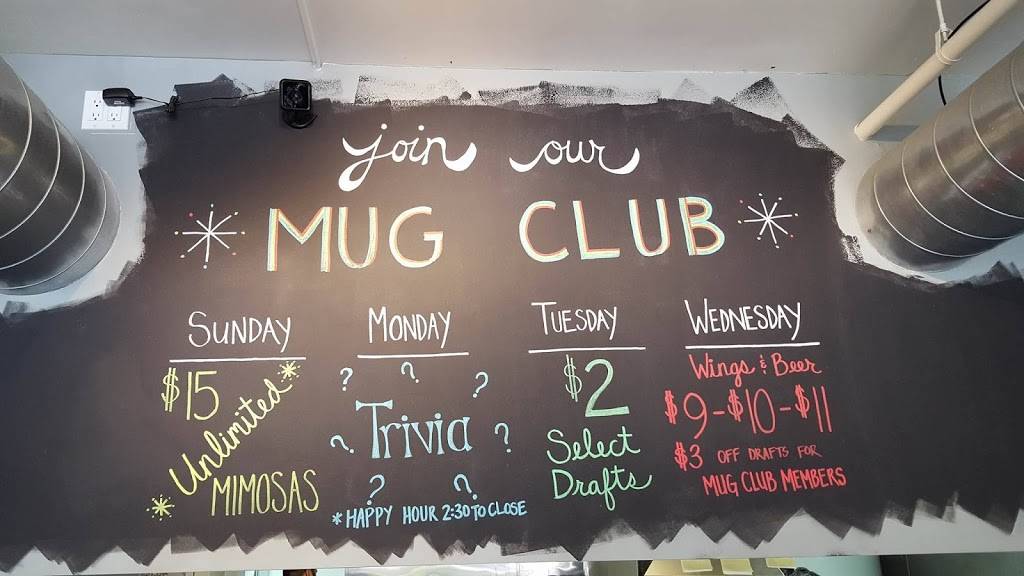 join our
MUG CLUB
SUNDAY
$15
Unlimited
MIMOSAS
MONDAY
? ? ?
? Trivia ?
? ?
* HAPPY HOUR 2:30 TO CLOSE
TUESDAY
$2
Select
Drafts
WEDNESDAY
Wings & Beer
$9-$10-$11
$3 OFF DRAFTS FOR
MUG CLUB MEMBERS